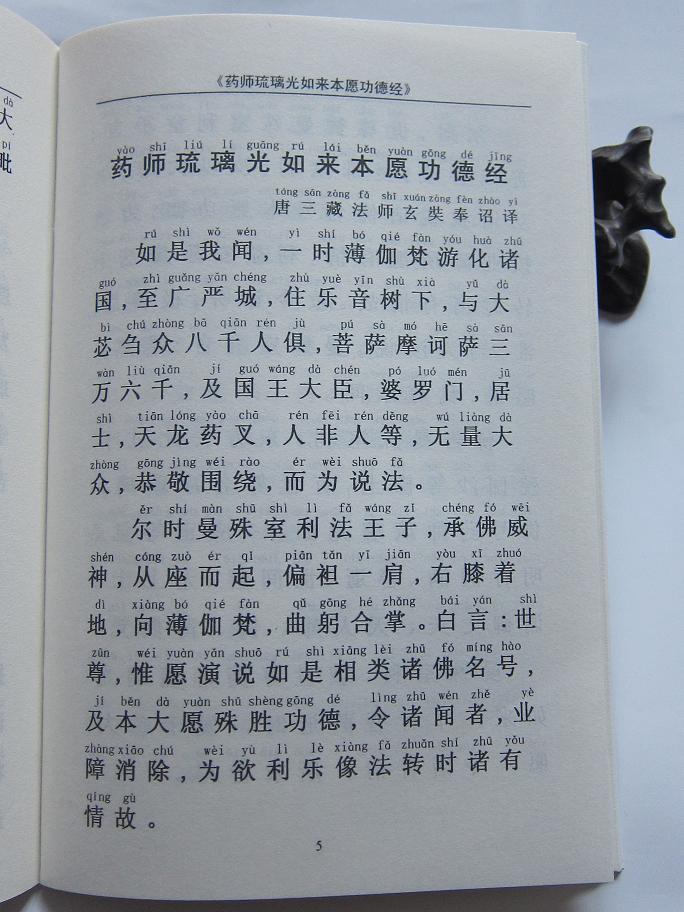 dà
大
pí
毗
《药师琉璃光如来本愿功德经》
yào shī liú lí guāng rú lái běn yuàn gōng dé jīng
药师琉璃光如来本愿功德经
táng sān zàng fǎ shī xuán zàng fèn zhào yì
唐三藏法师玄奘奉诏译
rú shì wǒ wén yì shí bó qié fàn yóu huà zhū
如是我闻,一时薄伽梵游化诸
guó zhì guǎng yán chéng zhù yuè yīn shù xià yǔ dà
国,至广严城,住乐音树下,与大
bì chú zhòng bā qiān rén jù pú sà mó hē sà sān
苾刍众八千人俱,菩萨摩诃萨三
wàn liù qiān jí guó wáng dà chén pó luó mén jū
万六千,及国王大臣,婆罗门,居
shì tiān lóng yào chā rén fēi rén děng wú liàng dà
士,天龙药叉,人非人等,无量大
zhòng gōng jìng wéi rào ér wèi shuō fǎ
众,恭敬围绕,而为说法。
ěr shí màn shū shì lì fǎ wáng zǐ chéng fó wēi
尔时曼殊室利法王子,承佛威
shén cóng zuò ér qǐ piān tǎn yī jiān yòu xī zhuó
神,从座而起,偏袒一肩,右膝着
dì xiàng bó qié fàn qū gōng hé zhǎng bái yán shì
地,向薄伽梵,曲躬合掌。白言:世
zūn wéi yuàn yǎn shuō rú shì xiāng lèi zhū fó míng hào
尊,惟愿演说如是相类诸佛名号,
jí běn dà yuàn shū shèng gōng dé lìng zhū wén zhě yè
及本大愿殊胜功德,令诸闻者,业
zhàng xiāo chú wèi yù lì lè xiàng fǎ zhuǎn shí zhū yǒu
障消除,为欲利乐像法转时诸有
qíng gù
情故。
5